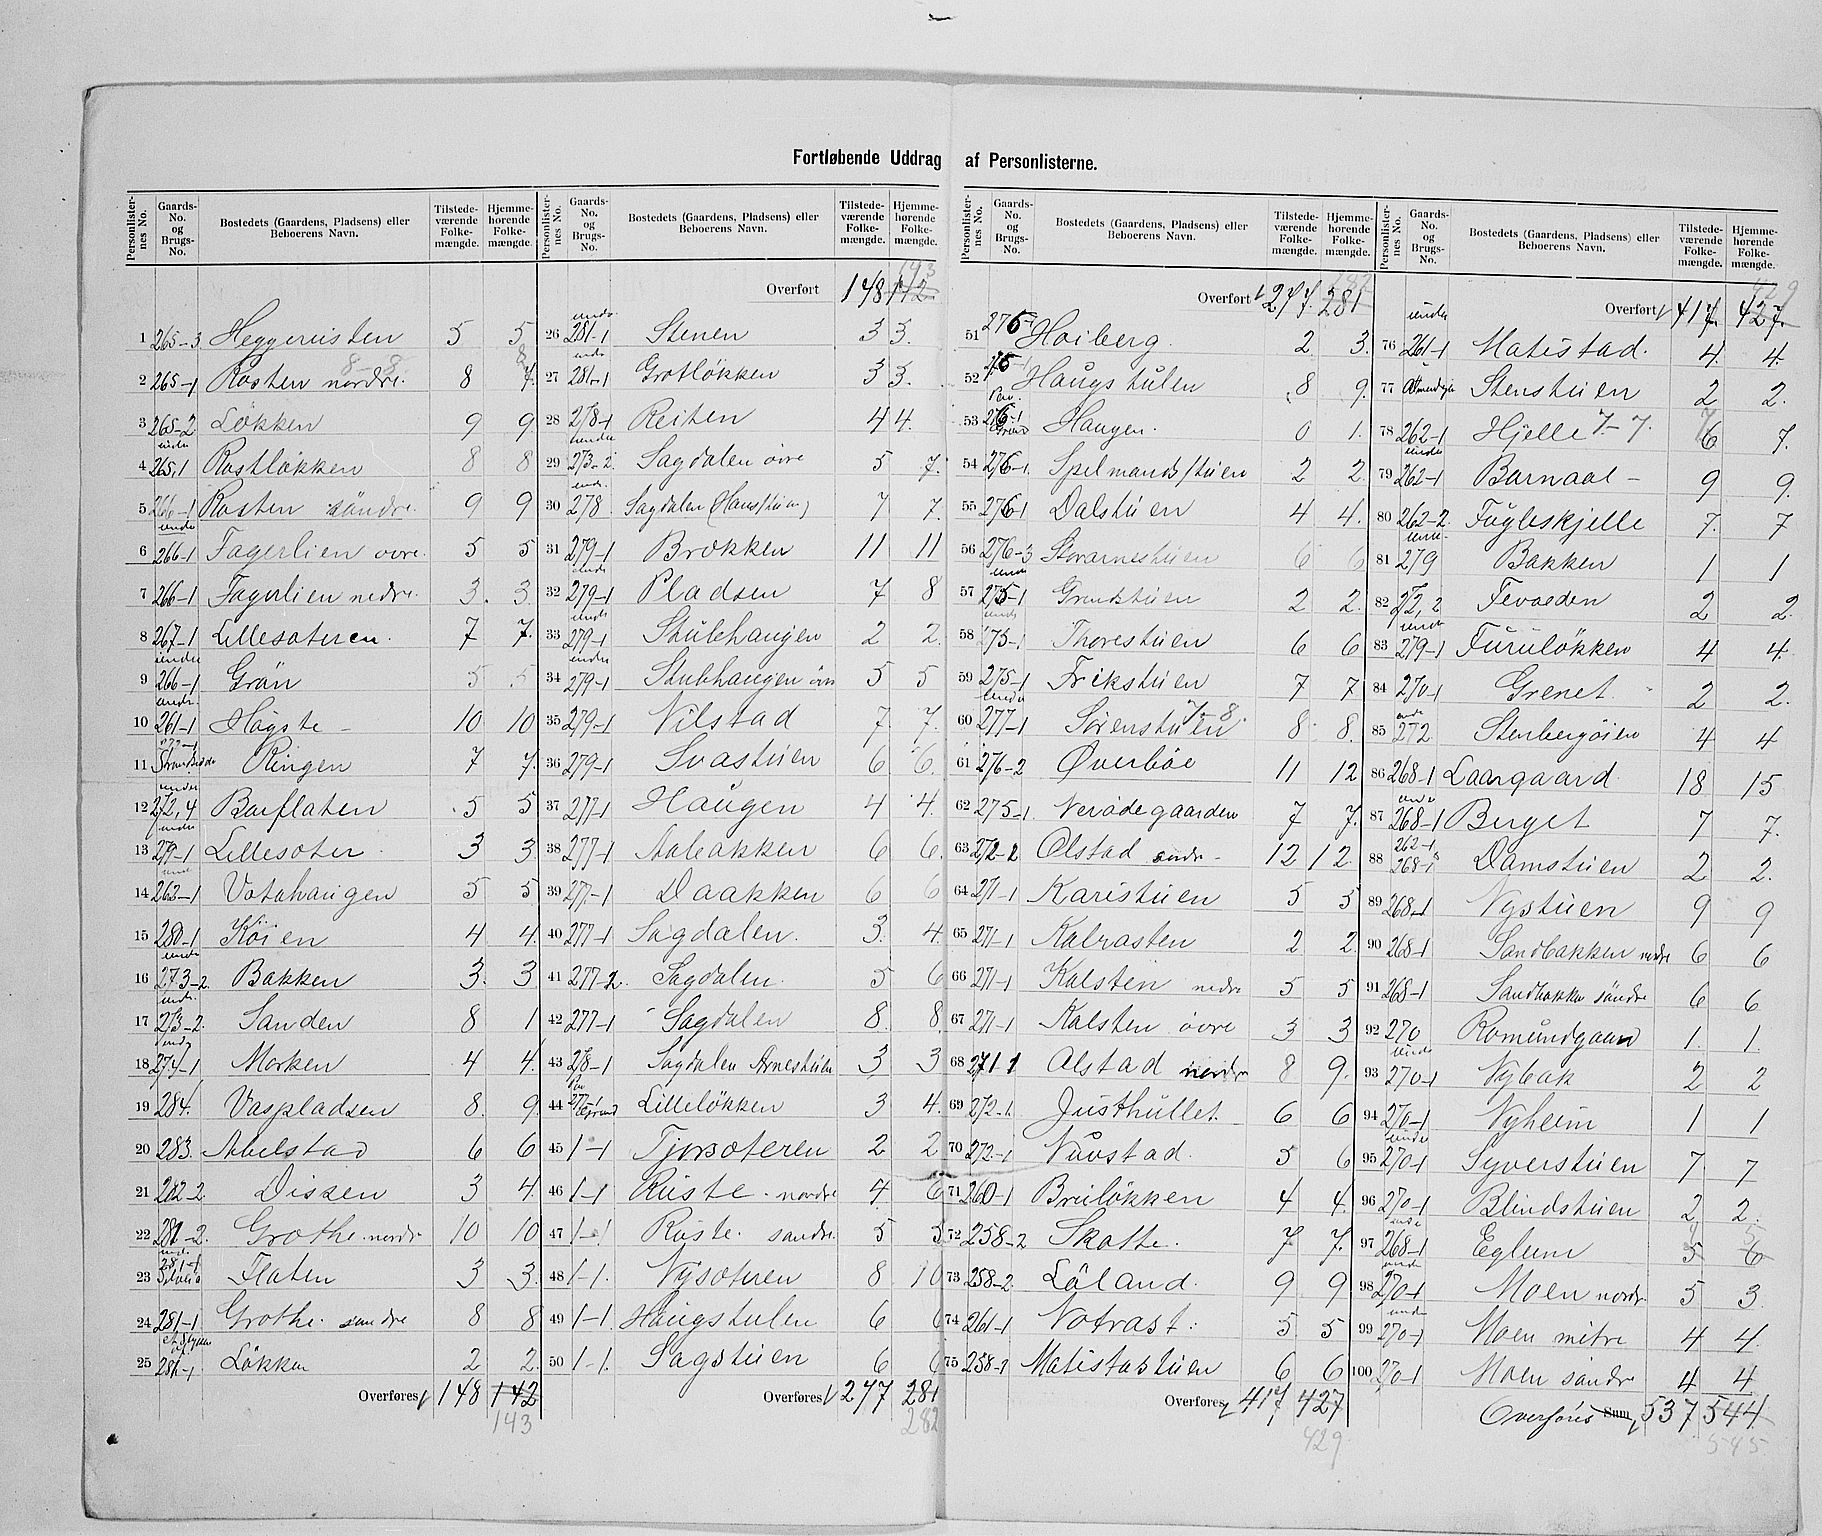 Fortløbende Uddrag af Personlisterne.
Personlisternes No. Gaards-No. og Brugs-No. Bostedets (Gaardens, Pladsens) eller Beboerens Navn. Tilstedeværende Folkemængde. Hjemmehørende Folkemængde.
1 265-3 Heggeruisten 5 5
2 265-1 Rosten nordre. 8-8 8 7. 8
3 265-2 Løkken 9 9
4 under 265,1 Rostløkken 8 8
5 266-1 Rosten søndre. 9 9
6 under 266-1 Fagerlien øvre. 5 5
7 266-1 Fagerlien nedre. 3. 3.
8 267-1 Lillesæteren. 7 7.
9 under 266-1 Grøn 5 5
10 undr. 261-1 Høgste - 10 10
11 Ringen 7 7.
12 under 272,4 Barflaten 5 5
13 under 279-1 Lillesæter. 3 3
14 und 263-1 Vatahaugen 5 5
15 280-1 Køien 4 4.
16 under 273-2 Bakken 3. 3.
17 undr. 273-2. Sanden 8 1
18 undr 274-1 Morken 4 4.
19 284. Vaspladsen 8. 9.
20 283. Abelstad 6 6
21 282-2 Dissen 3 4.
22 281-2. Grothe. nordr 10 10
23 und. 281-1 Flaten 3 3.
24 281-1 Grothe. søndre 8 8
25 281-1 Løkken 2 2.
Overføres 148 142 143
Personlisternes No. Gaards-No. og Brugs-No. Bostedets (Gaardens, Pladsens) eller Beboerens Navn. Tilstedeværende Folkemængde. Hjemmehørende Folkemængde.
Overført 148 142. 143
26 undr. 281-1 Stenen 3 3.
27 undr 281-1 Grotløkken 3 3.
28 278-1 Reiten 4 4.
29 under 273-2. Sagdalen øvre 5 7.
30 undr. 278. Sagdalen (Hansstuen) 7 7.
31 279-1 Brækken 11 11
32 under 279-1 Pladsen 7 8
33 under 279-1 Stubhaugen 2 2.
34 under 279-1 Stubhaugen øvr 5 5
35 279-1 Vilstad 7 7.
36 279-1 Svastuen 6 6.
37 277-1 Haugen 4 4.
38 277-1 Aabakken 6 6.
39 277-1 Daakken 6 6
40 277-1 Sagdalen. 3. 4.
41 277-2. Sagdalen. 5 6
42 277-1 Sagdalen 8. 8.
43 278-1 Sagdalen Arnestuen 3 3
44 Lilleløkken 3 4.
45 1-1 Tjørsæteren 2 2
46 1-1 Ruste. nordre 4. 6
47 1-1 Ruste. søndre. 5 5
48 1-1. Nysæteren 8 10
49 1-1 Haugstulen 6 6
50 1-1. Sagstuen 6 6
Overføres 277 281 282
Personlisternes No. Gaards-No. og Brugs-No. Bostedets (Gaardens, Pladsens) eller Beboerens Navn. Tilstedeværende Folkemængde. Hjemmehørende Folkemængde.
Overført 277. 281 282
51 276-1 Høiberg. 2 3.
52 Haugstulen 8 9.
53 276-1 Haugen. 0 1.
54 276-1. Spelmandsstuen 2 2.
55 276-1 Dalstuen 4 4.
56 276-3 Storarnestuen 6 6
57 under 275-1 Grundstuen 2 2.
58 under 275-1 Thorestuen 6 6
59 275-1 Frikstuen 7 7
60 under 277-1 Sørenstuen 7-8. 8 8.
61 276-2 Øverbøe 11 12
62 275-1. Nerødegaarden 7 7.
63 272-2 Olstad søndr. 12 12.
64 271-1 Karistuen 5 5
65 271-1 Kalrasten 2 2.
66 271-1 Kalsten nedre 5 5
67 271-1 Kalsten øvre 3 3
68 271 1 Olstad nordre 8 9.
69 272-1. Justhullet. 6 6
70 272-1 Nuvstad. 5 6
71 260-1 Bruløkken 4 4.
72 258-2 Skotte. 7 7.
73 258-2. Løland. 9 9
74 261-1 Notrast. 5 5
75 258-2 Matistastuen 6 6
Overføres 417 427 429
Personlisternes No. Gaards-No. og Brugs-No. Bostedets (Gaardens, Pladsens) eller Beboerens Navn. Tilstedeværende Folkemængde. Hjemmehørende Folkemængde.
Overført 417. 427. 429
76 under 261-1 Matistad. 4. 4.
77 Stenstuen 2 2.
78 262-1 Hjelle 7-7. 6 7 7.
79 under 262-1 Barnaal - 9 9.
80 262-2. Fugleskjelle 7. 7
81 279 Bakken 1 1
82 272,2 Fevolden 2 2.
83 under 279-1 Furuløkken 4 4.
84 270-1 Grenet. 2 2.
85 under 272 Stenbergøien 4 4
86 268-1 Laargaard 18 15
87 under 268-1 Berget 7 7.
88 262-1 268-1 Damstuen 2 2.
89 268-1 Nystuen 9 9
90 268-1 Sandbakken nedre 6 6
91 268-1 Sandbakken søndre 6 6
92 270 Romundgaard 1. 1.
93 under 270-1 Nybak 2 2
94 270-1 Nyheim 1 1
95 under 270-1 Syverstuen 7 7
96 270-1 Blindstuen 2 2.
97 under 268-1 Eglum 5 6
98 under 270-1 Moen nordr. 5 3.
99 under 270-1 Moen mitre 4 4.
100 270-1 Moen søndr 4 4
Overføres Sum 537 544 545